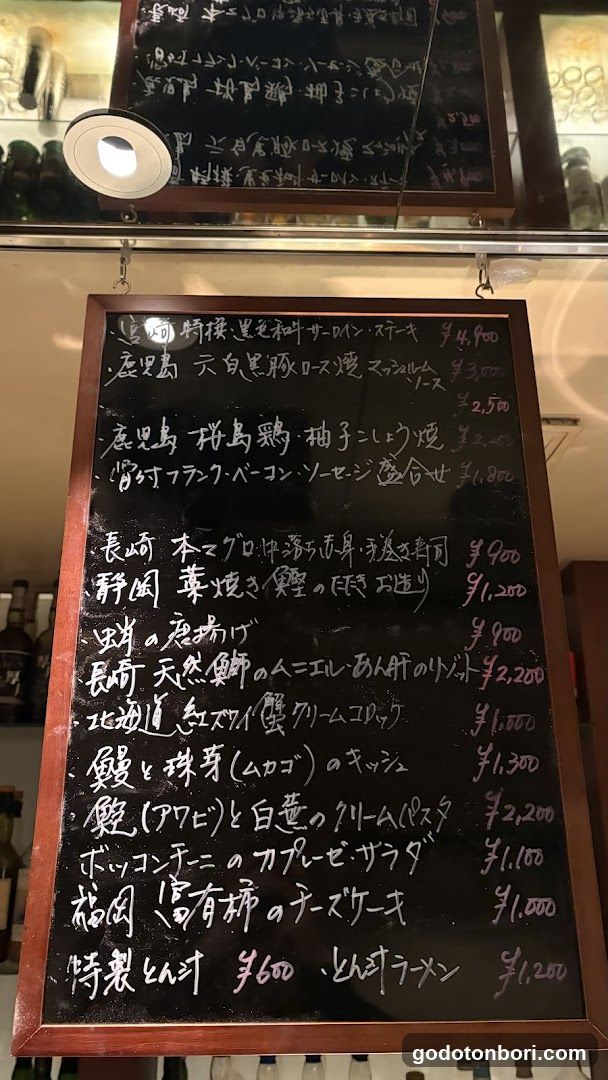 宮崎 特撰・黒毛和牛サーロイン・ステーキ ¥4,900
鹿児島 六白黒豚ロース焼 マッシュルームソース ¥3,000
¥2,500
鹿児島 桜島鶏・柚子こしょう焼 ¥2,200
・骨付フランク・ベーコン・ソーセージ盛合せ ¥1,800
・長崎 本マグロ・中落ち・赤身・手巻き寿司 ¥900
静岡 藁焼き鰹のたたきお造り ¥1,200
・蛸の唐揚げ ¥900
・長崎 天然鰤のムニエル・あん肝のリゾット ¥2,200
・北海道 紅ズワイ蟹クリームコロッケ ¥1,000
・鰻と珠芽(ムカゴ)のキッシュ ¥1,300
・鮑(アワビ)と白葱のクリームパスタ ¥2,200
ボッコンチーニのカプレーゼ・サラダ ¥1,100
福岡 富有柿のチーズケーキ ¥1,000
特製とん汁 ¥600 ・とん汁ラーメン ¥1,200
godotonbori.com